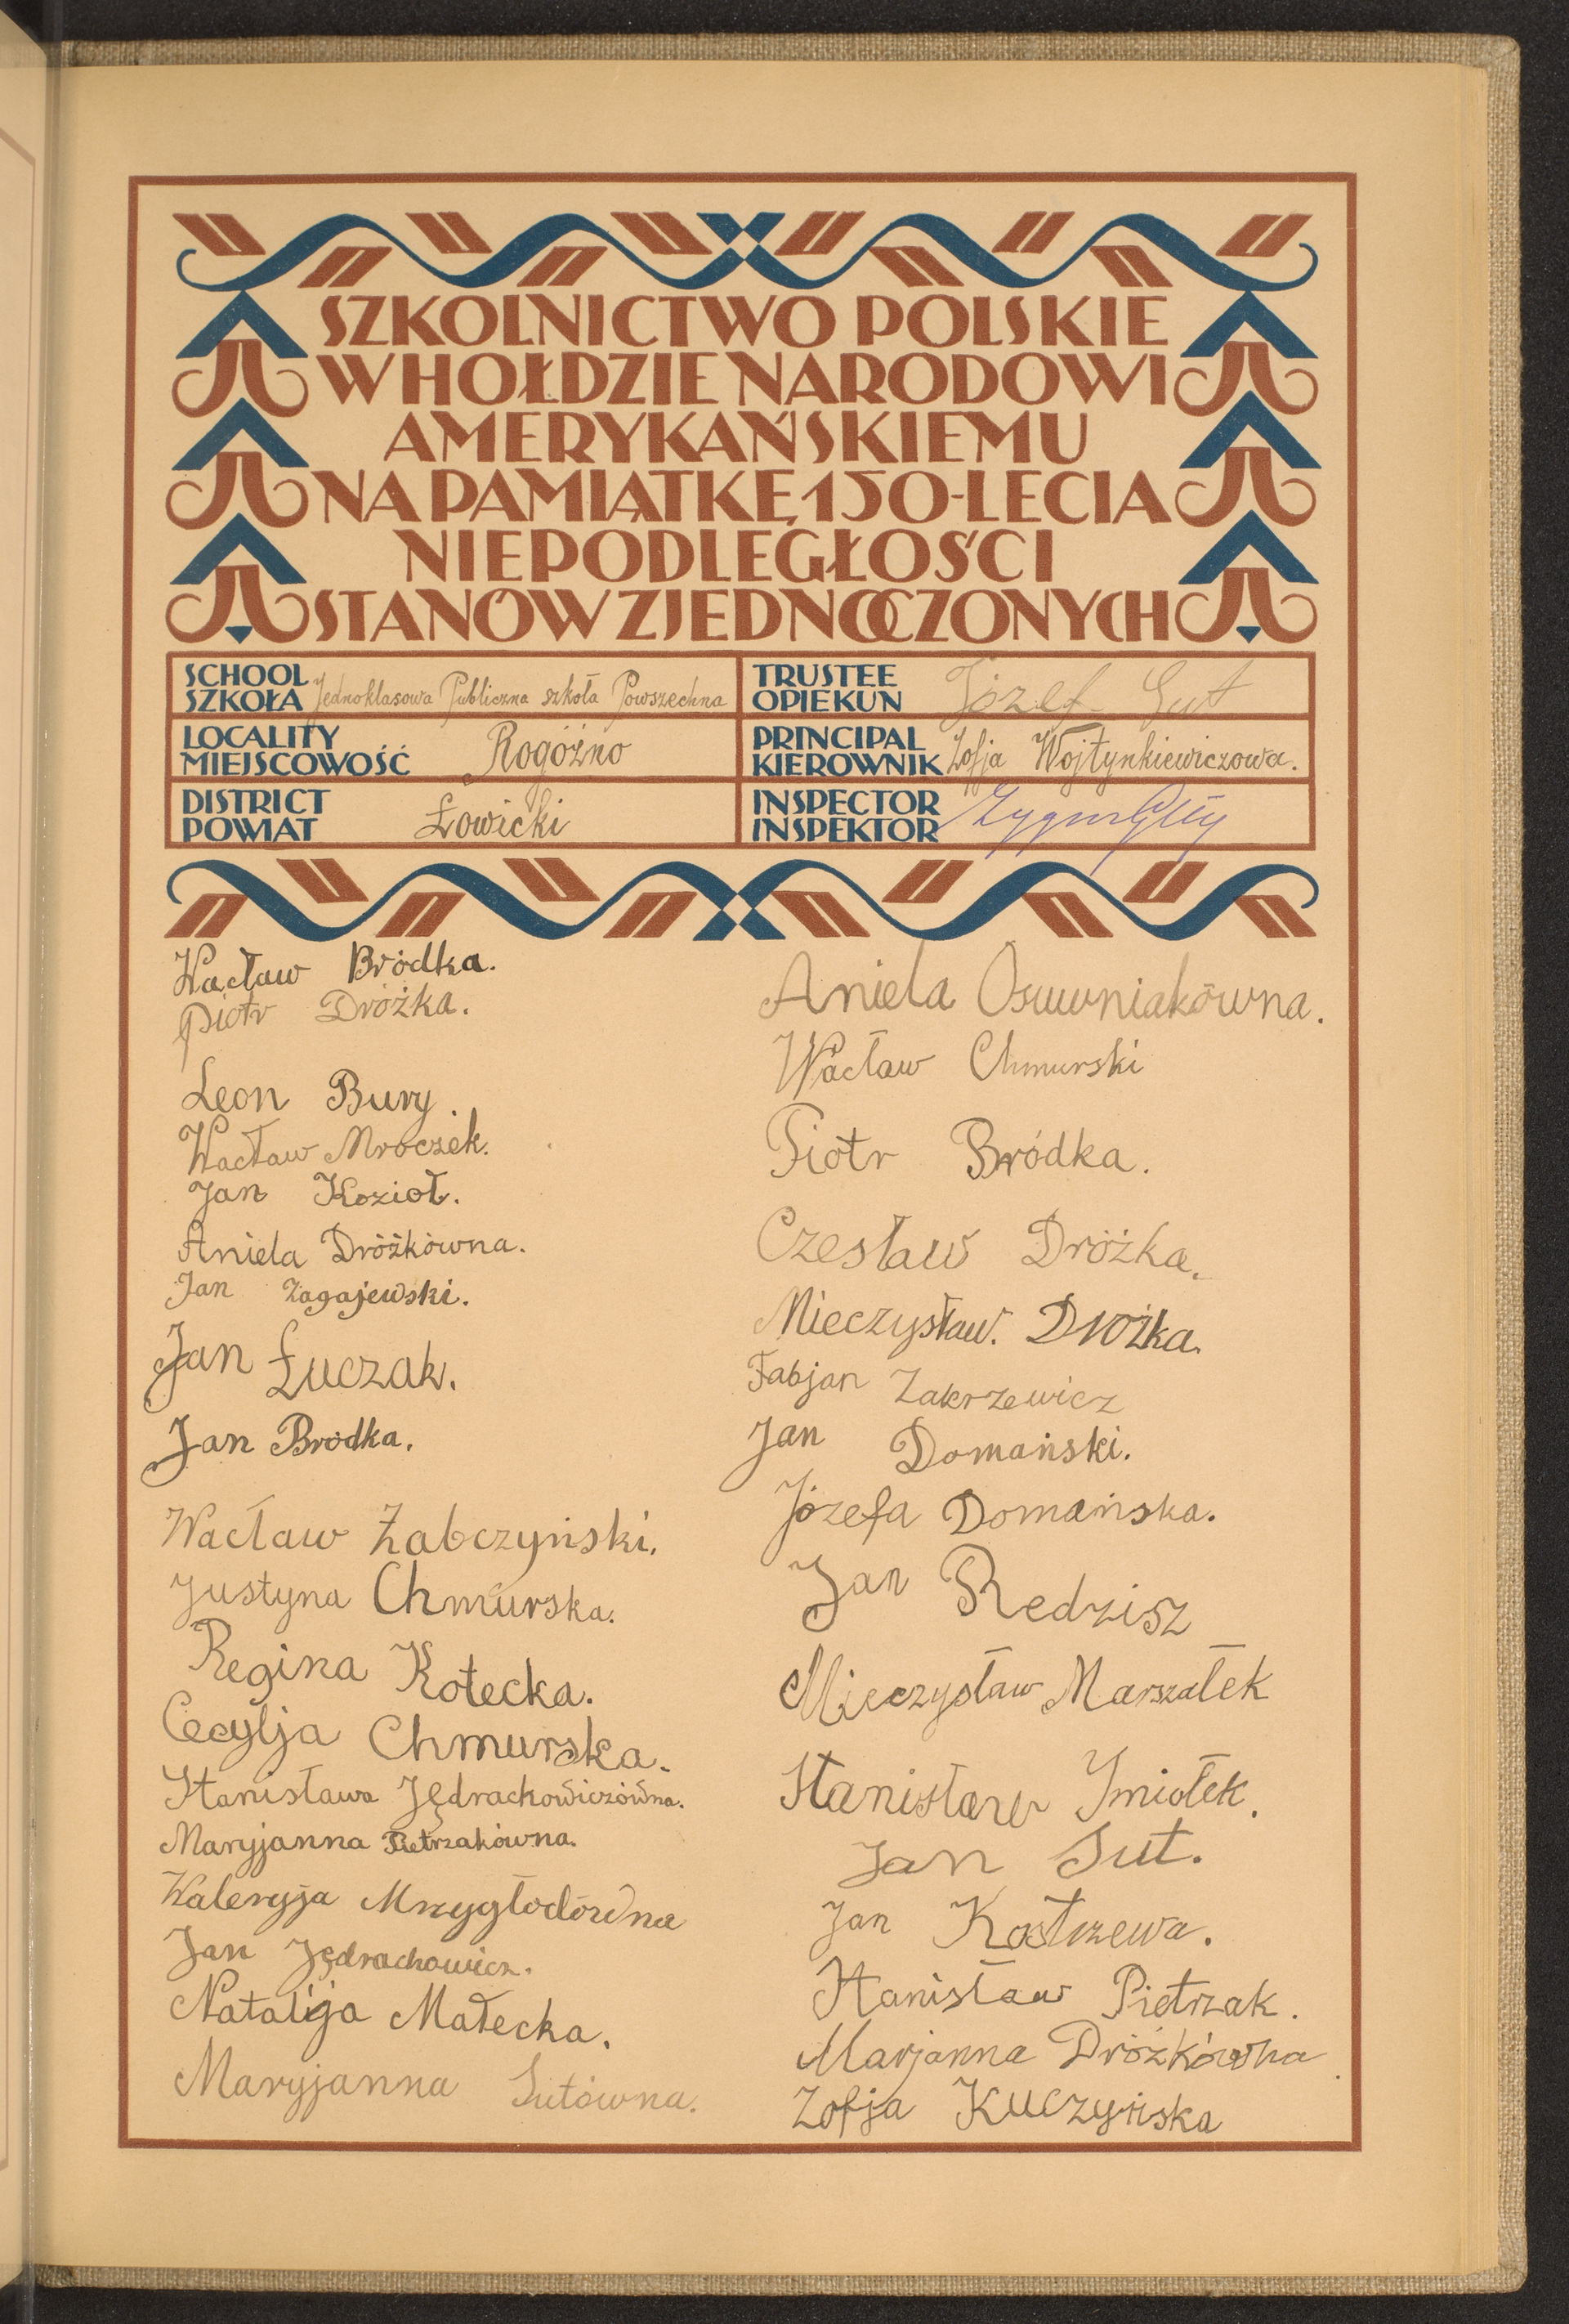 SZKOLNICTWO POLSKIE
W HOŁDZIE NARODOWI
AMERYKAŃSKIEMU
NA PAMIĄTKĘ 150-LECIA
NIEPODLEGŁOŚCI
STANÓW ZJEDNOCZONYCH
SCHOOL
SZKOŁA Jednoklasowa Publiczna szkoła Powszechna
TRUSTEE
OPIEKUN Józef Gut
LOCALITY
MIEJSCOWOŚĆ Rogóźno
PRINCIPAL
KIEROWNIK Zofja Wojtynkiewiczowa.
DISTRICT
POWIAT Łowicki
INSPECTOR
INSPEKTOR
Wacław Bródka.
Piotr Dróżka.
Leon Bury.
Wacław Mroczek.
Jan Kozioł.
Aniela Dróżkówna.
Jan Zagajewski.
Jan Łuczak.
Jan Bródka.
Wacław Żabczyński.
Justyna Chmurska.
Regina Kotecka.
Cecylja Chmurska.
Stanisława Jędrachowiczówna.
Maryjanna Pietrzakówna.
Waleryja Mrzygłodówna
Jan Jędrachowicz.
Natalija Małecka.
Maryjanna Gutówna.
Aniela
Wacław Chmurski
Piotr Bródka.
Czesław Dróżka.
Mieczysław. Dróżka.
Fabjan Zakrzewicz
Jan Domański.
Józefa Domańska.
Jan Redzisz
Mieczysław Marszałek
Stanisław Imiołek.
Jan Gut.
Jan Kostrzewa.
Stanisław Pietrzak.
Marjanna Dróżkówna
Zofja Kuczyńska